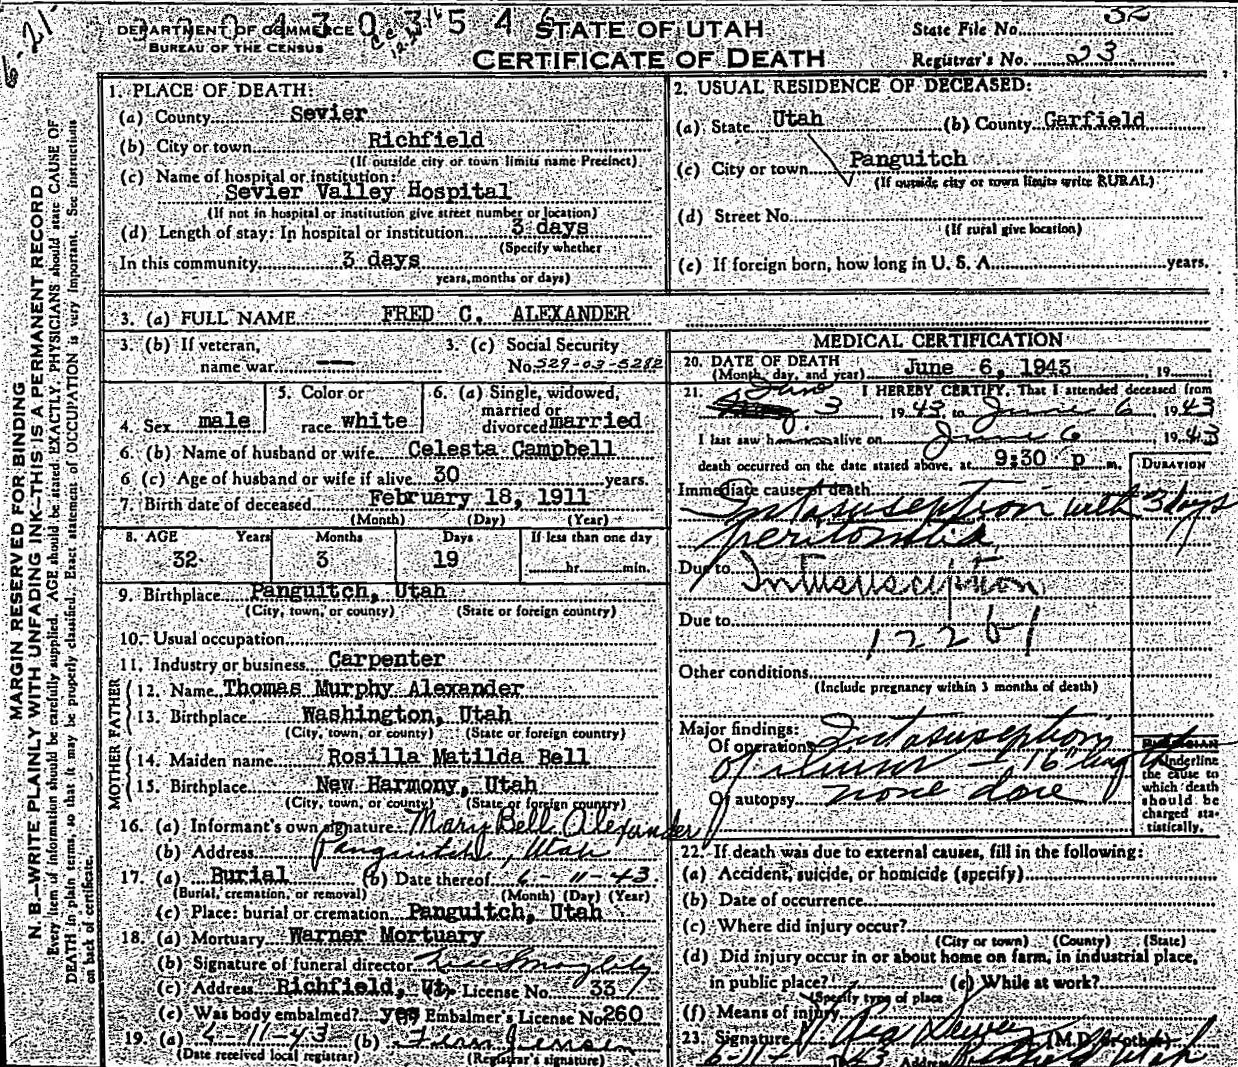 DEPARTMENT OF COMMERCE
BUREAU OF THE CENSUS
STATE OF UTAH
CERTIFICATE OF DEATH
State File No. 32
Registrar's No. 23
MARGIN RESERVED FOR BINDING
N. B.—WRITE PLAINLY WITH UNFADING INK—THIS IS A PERMANENT RECORD
Every item of information should be carefully supplied. AGE should be stated EXACTLY. PHYSICIANS should state CAUSE OF
DEATH in plain terms, so that it may be properly classified. Exact statement of OCCUPATION is very important. See instructions
on back of certificate.
1. PLACE OF DEATH:
(a) County Sevier
(b) City or town Richfield
(If outside city or town limits name Precinct)
(c) Name of hospital or institution:
Sevier Valley Hospital
(If not in hospital or institution give street number or location)
(d) Length of stay: In hospital or institution 3 days
(Specify whether
In this community 3 days
years, months or days)
2. USUAL RESIDENCE OF DECEASED:
(a) State Utah (b) County Garfield
(c) City or town Panguitch
(If outside city or town limits write RURAL)
(d) Street No.
(If rural give location)
(e) If foreign born, how long in U. S. A. years.
3. (a) FULL NAME FRED C. ALEXANDER
3. (b) If veteran, name war —
3. (c) Social Security No 529-03-5282
4. Sex male
5. Color or race white
6. (a) Single, widowed, married or divorced married
6. (b) Name of husband or wife Celesta Campbell
6 (c) Age of husband or wife if alive 30 years.
7. Birth date of deceased February 18, 1911
(Month) (Day) (Year)
8. AGE Years Months Days If less than one day
32 3 19 hr. min.
9. Birthplace Panguitch, Utah
(City, town, or county) (State or foreign country)
10. Usual occupation
11. Industry or business Carpenter
FATHER
12. Name Thomas Murphy Alexander
13. Birthplace Washington, Utah
(City, town, or county) (State or foreign country)
MOTHER
14. Maiden name Rosilla Matilda Bell
15. Birthplace New Harmony, Utah
(City, town, or county) (State or foreign country)
16. (a) Informant's own signature Mary Bell Alexander
(b) Address Panguitch, Utah
17. (a) Burial (b) Date thereof 6-11-43
(Burial, cremation, or removal) (Month) (Day) (Year)
(c) Place: burial or cremation Panguitch, Utah
18. (a) Mortuary Warner Mortuary
(b) Signature of funeral director
(c) Address Richfield, Ut. License No. 33
(e) Was body embalmed? yes Embalmer's License No 260
19. (a) 6-11-43 (b) Fern Jensen
(Date received local registrar) (Registrar's signature)
MEDICAL CERTIFICATION
20. DATE OF DEATH June 6, 1943 19
(Month, day, and year)
21. I HEREBY CERTIFY, That I attended deceased from
June 3, 1943 to June 6, 1943
I last saw h alive on June 6, 1943
death occurred on the date stated above, at 9:30 p m.
DURATION
Immediate cause of death
Intususeption with 3 days
peritonitis
Due to Intususcipton
Due to
122 b-1
Other conditions
(Include pregnancy within 3 months of death)
Major findings:
Of operations Intasuseption
of 16"
Of autopsy none done
Underline
the cause to
which death
should be
charged sta-
tistically.
22. If death was due to external causes, fill in the following:
(a) Accident, suicide, or homicide (specify)
(b) Date of occurrence
(c) Where did injury occur?
(City or town) (County) (State)
(d) Did injury occur in or about home on farm, in industrial place,
in public place? (e) While at work?
(Specify type of place
(f) Means of injury
23. Signature (M.D. or other)
Richfield Utah